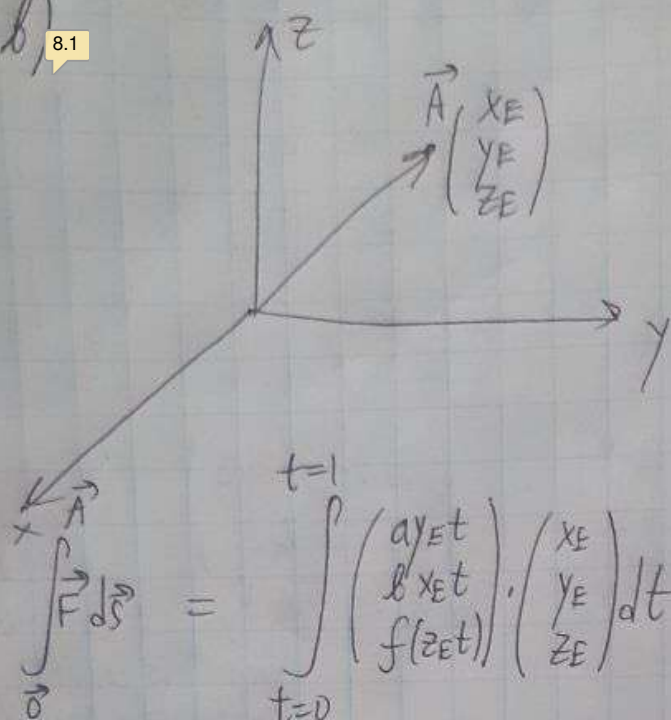 b) 8.1
z
A⃗ (x_E
y_E
z_E)
y
x
∫_{0⃗}^{A⃗} F⃗ ds⃗ = ∫_{t=0}^{t=1} (ay_E t
b x_E t
f(z_E t)) · (x_E
y_E
z_E) dt